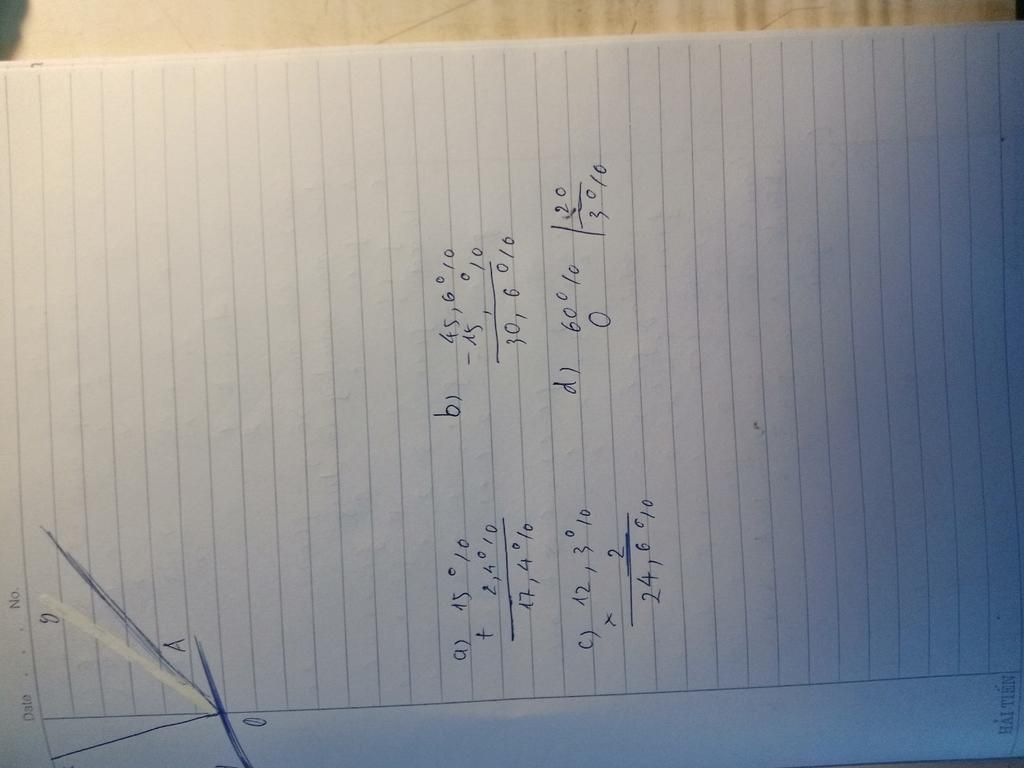 Date No.
A
O
a) 15%
+ 2,4%
17,4%
b) 45,6%
- 15, %
30,6%
c) 12,3%
× 2
24,6%
d) 60% 20
0 3%
HẢI TIẾN